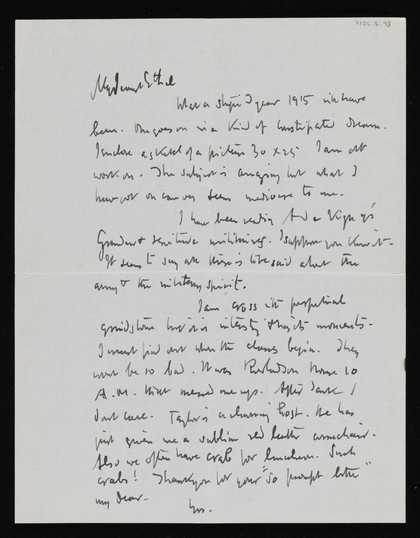 My dear Ethel
What a stupid year 1915 will have
been. One goes on in a kind of constipated dream.
I enclose a sketch of a picture 30 x 25 I am at
work on. The subject is amazing but what I
have got on canvas seems mediocre to me.
I have been reading Alfred de Vigny's
Grandeur et servitude militaires. I suppose you know it.
It seems to say all there is to be said about the
army & the military spirit.
I am cross with perpetual
grindstone but it is interesting & has its moments.
I must find out when the classes begin. They
must be so bad. It was 10
A.M. that messed me up. After dark I
don't care. Taylor is a charming host. He has
just given me a sublime red leather armchair.
Also we often have crab for luncheon. Such
crabs! Thank you for your "so prompt letter"
my dear.
Yrs.